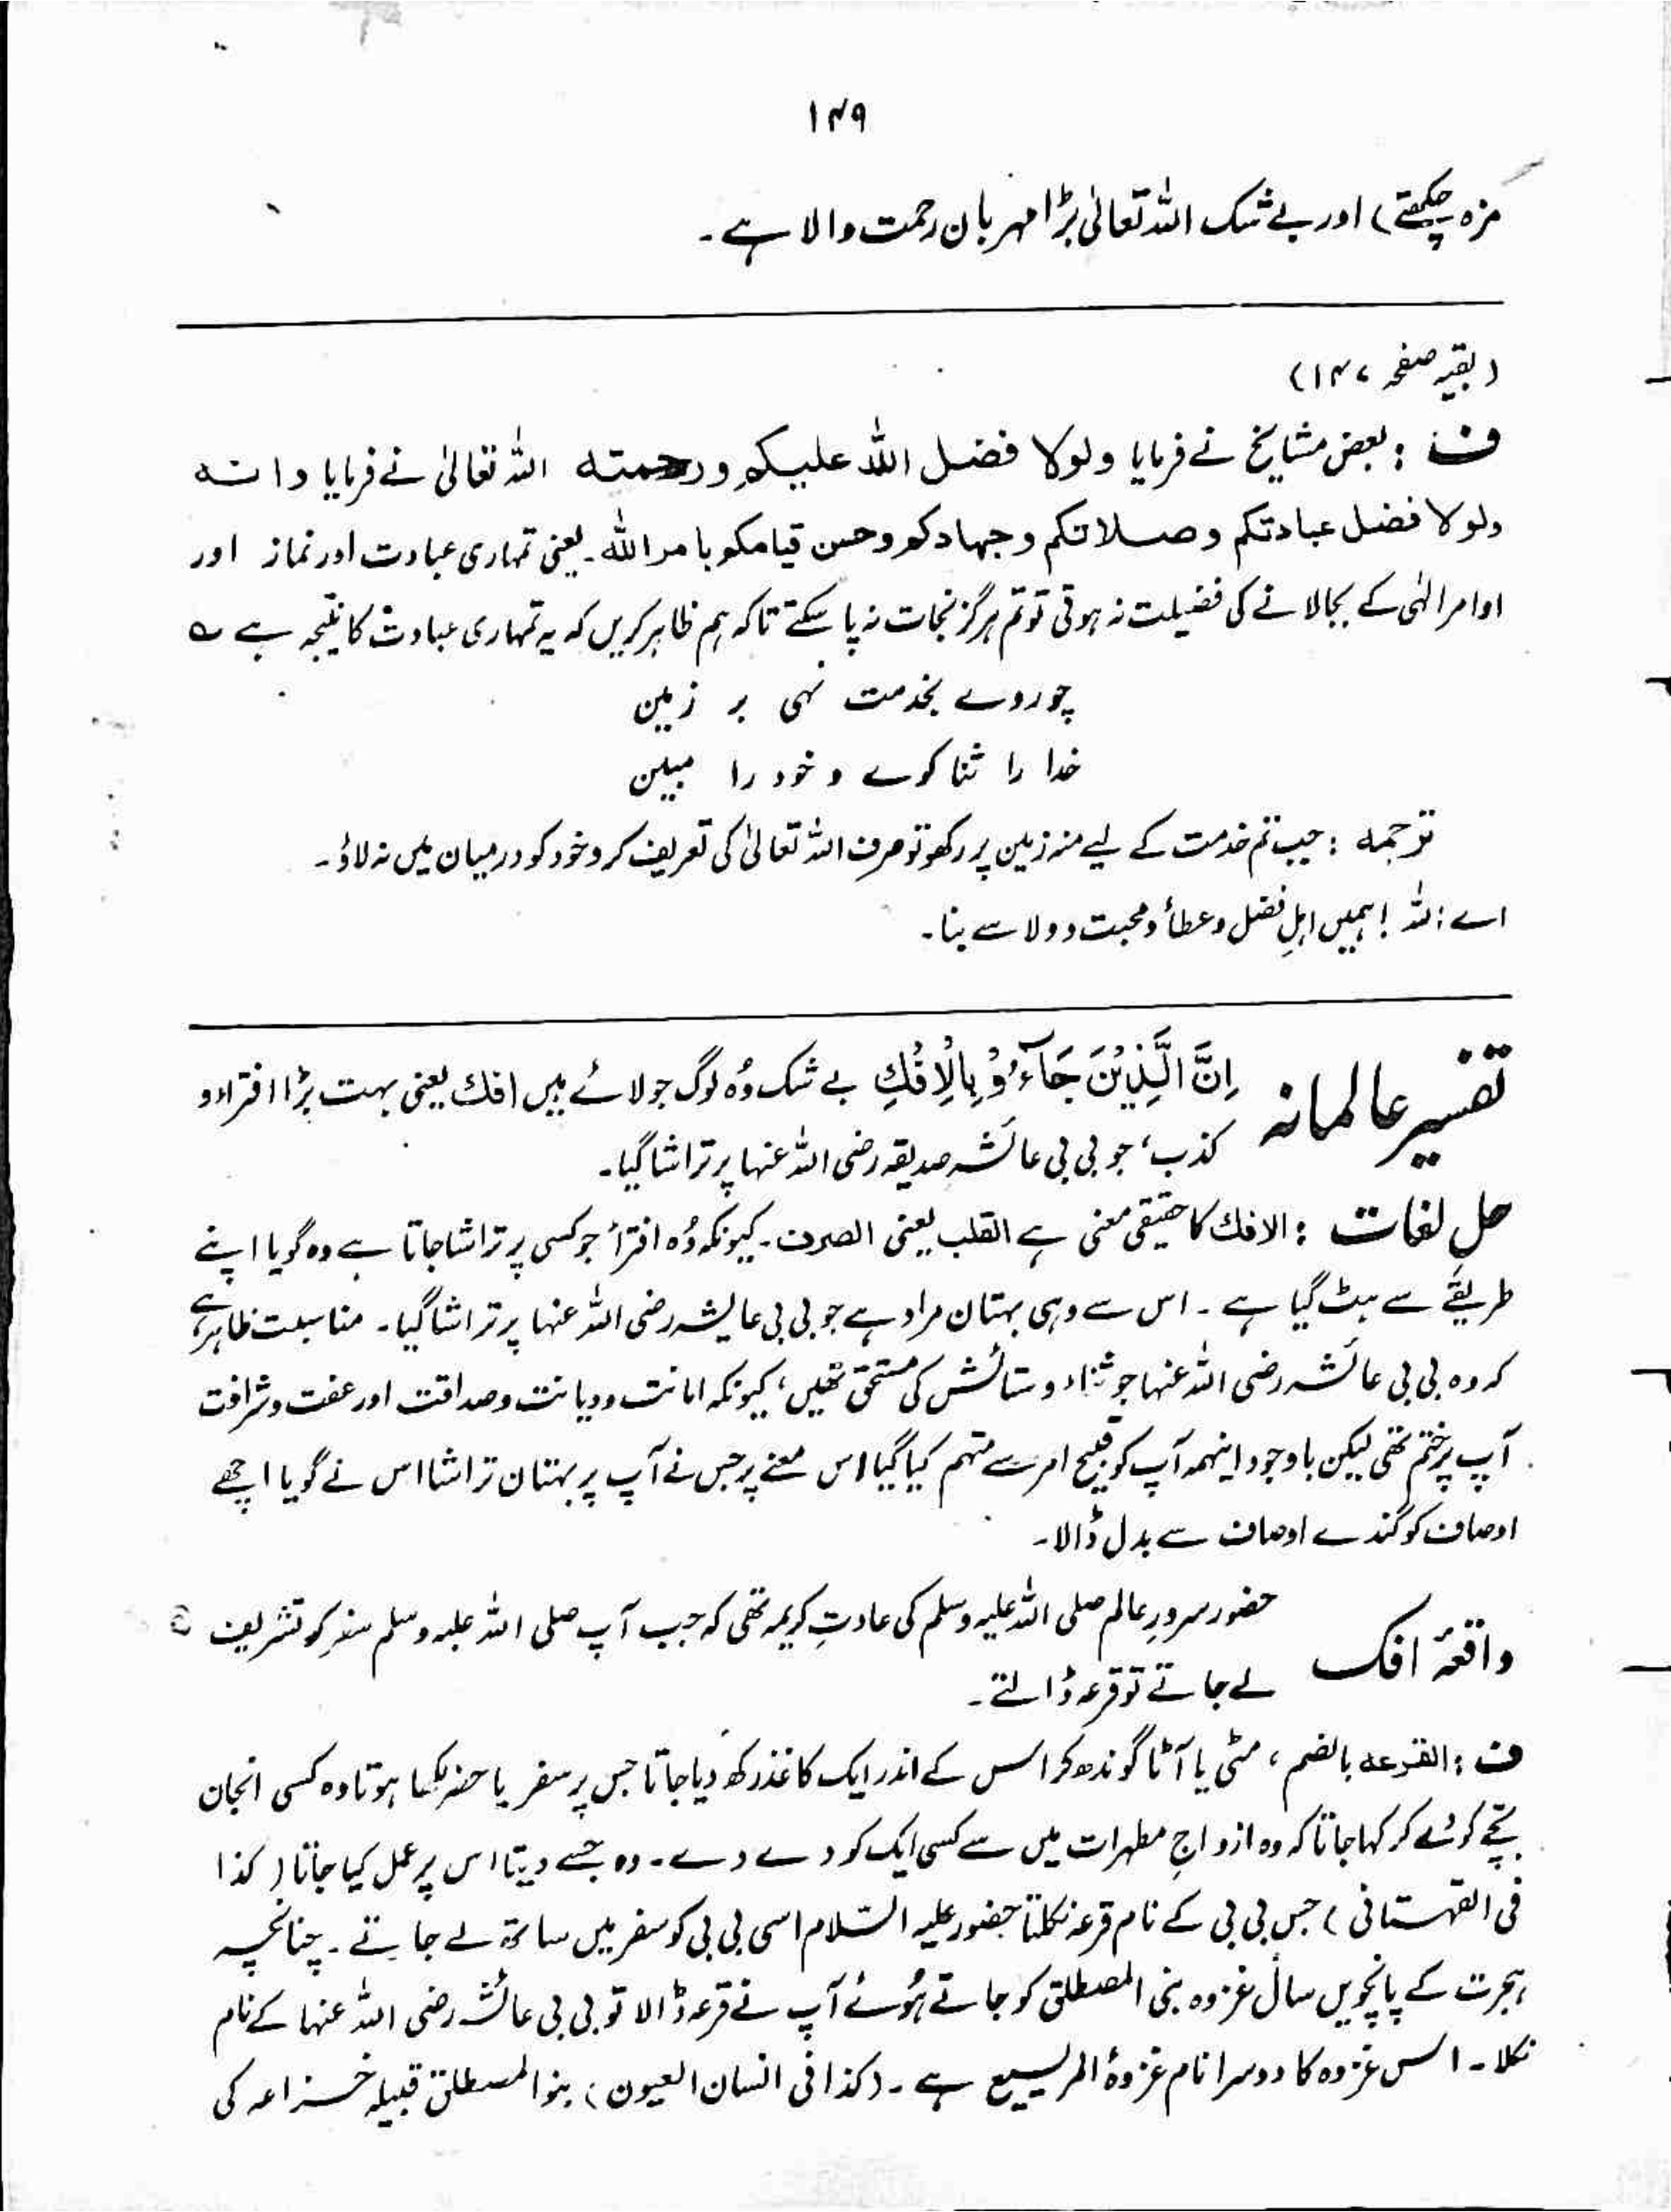 ۱۴۹
مزہ چکھتے) اور بے شک اللہ تعالیٰ بڑا مہربان رحمت والا ہے۔
(بقیہ صفحہ ۱۴۷)
ف : بعض مشایخ نے فرمایا ولولا فضل اللہ علیکم ورحمتہ اللہ تعالیٰ نے فرمایا وانہ
ولولا فضل عبادتکم وصلاتکم وجہادکم وحسن قیامکم بامر اللہ۔ یعنی تمہاری عبادت اور نماز اور
اوامر الٰہی کے بجالانے کی فضیلت نہ ہوتی تو تم ہرگز نجات نہ پا سکتے تاکہ ہم ظاہر کریں کہ یہ تمہاری عبادت کا نتیجہ ہے ؎
چو روے بخدمت نہی بر زمین
خدا را ثنا کوے و خود را مبین
ترجمہ : جب تم خدمت کے لیے منہ زمین پر رکھو تو صرف اللہ تعالیٰ کی تعریف کرو خود کو درمیان میں نہ لاؤ۔
اے اللہ! ہمیں اہلِ فضل وعطأ ومحبت و ولا سے بنا۔
تفسیر عالمانہ
اِنَّ الَّذِیْنَ جَآءُوْ بِالْاِفْكِ بے شک وُہ لوگ جو لائے ہیں افك یعنی بہت بڑا افتراء و
کذب، جو بی بی عائشہ صدیقہ رضی اللہ عنہا پر تراشا گیا۔
حل لغات : الافك کا حقیقی معنی ہے القلب یعنی الصرف۔ کیونکہ وُہ افترأ جو کسی پر تراشا جاتا ہے وہ گویا اپنے
طریقے سے ہٹ گیا ہے۔ اس سے وہی بہتان مراد ہے جو بی بی عایشہ رضی اللہ عنہا پر تراشا گیا۔ مناسبت ظاہر ہے
کہ وہ بی بی عائشہ رضی اللہ عنہا جو ثناء و ستائش کی مستحق تھیں، کیونکہ امانت و دیانت و صداقت اور عفت و شرافت
آپ پر ختم تھی لیکن باوجود اینہمہ آپ کو قبیح امر سے متہم کیا گیا اس معنے پر جس نے آپ پر بہتان تراشا اس نے گویا اچھے
اوصاف کو گندے اوصاف سے بدل ڈالا۔
واقعۂ افک
حضور سرورِ عالم صلی اللہ علیہ وسلم کی عادتِ کریمہ تھی کہ جب آپ صلی اللہ علیہ وسلم سفر کو تشریف
لے جاتے تو قرعہ ڈالتے۔
ف : القرعہ بالضم، مٹی یا آٹا گوندھ کر اس کے اندر ایک کاغذ رکھ دیا جاتا جس پر سفر یا حضر لکھا ہوتا وہ کسی انجان
بچے کو دے کر کہا جاتا کہ وہ ازواجِ مطہرات میں سے کسی ایک کو دے دے۔ وہ جسے دیتا اس پر عمل کیا جاتا (کذا
فی القہستانی) جس بی بی کے نام قرعہ نکلتا حضور علیہ السّلام اسی بی بی کو سفر میں ساتھ لے جاتے۔ چنانچہ
ہجرت کے پانچویں سال غزوہ بنی المصطلق کو جاتے ہُوئے آپ نے قرعہ ڈالا تو بی بی عائشہ رضی اللہ عنہا کے نام
نکلا۔ اس غزوہ کا دوسرا نام غزوۂ المریسیع ہے۔ (کذا فی انسان العیون) بنوالمصطلق قبیلہ خزاعہ کی